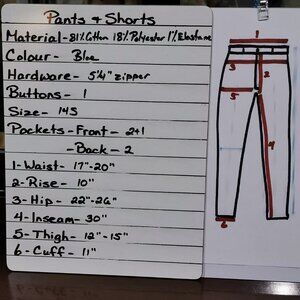 Pants & Shorts
Material - 81% Cotton 18% Polyester 1% Elastane
Colour - Blue
Hardware - 5¼" zipper
Buttons - 1
Size - 14S
Pockets - Front - 2+1
- Back - 2
1 - Waist - 17" - 20"
2 - Rise - 10"
3 - Hip - 22" - 26"
4 - Inseam - 30"
5 - Thigh - 12" - 15"
6 - Cuff - 11"
1
3
2
5
4
6